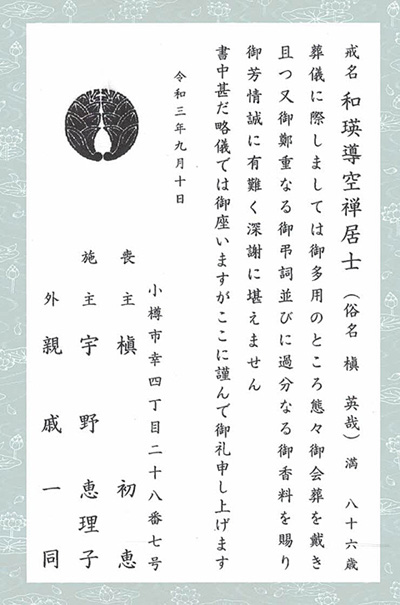 戒名 和瑛導空禅居士 (俗名 槇 英哉) 満 八十六歳
葬儀に際しましては御多用のところ態々御会葬を戴き
且つ又御鄭重なる御弔詞並びに過分なる御香料を賜り
御芳情誠に有難く深謝に堪えません
書中甚だ略儀では御座いますがここに謹んで御礼申し上げます
令和三年九月十日
小樽市幸四丁目二十八番七号
喪主 槇 初恵
施主 宇野 恵理子
外 親戚一同